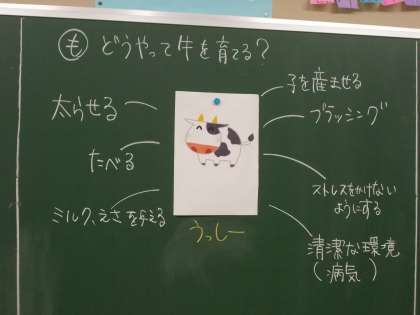 も どうやって牛を育てる?
太らせる
たべる
ミルク、えさを与える
うっしー
子を産ませる
ブラッシング
ストレスをかけない
ようにする
清潔な環境
(病気)